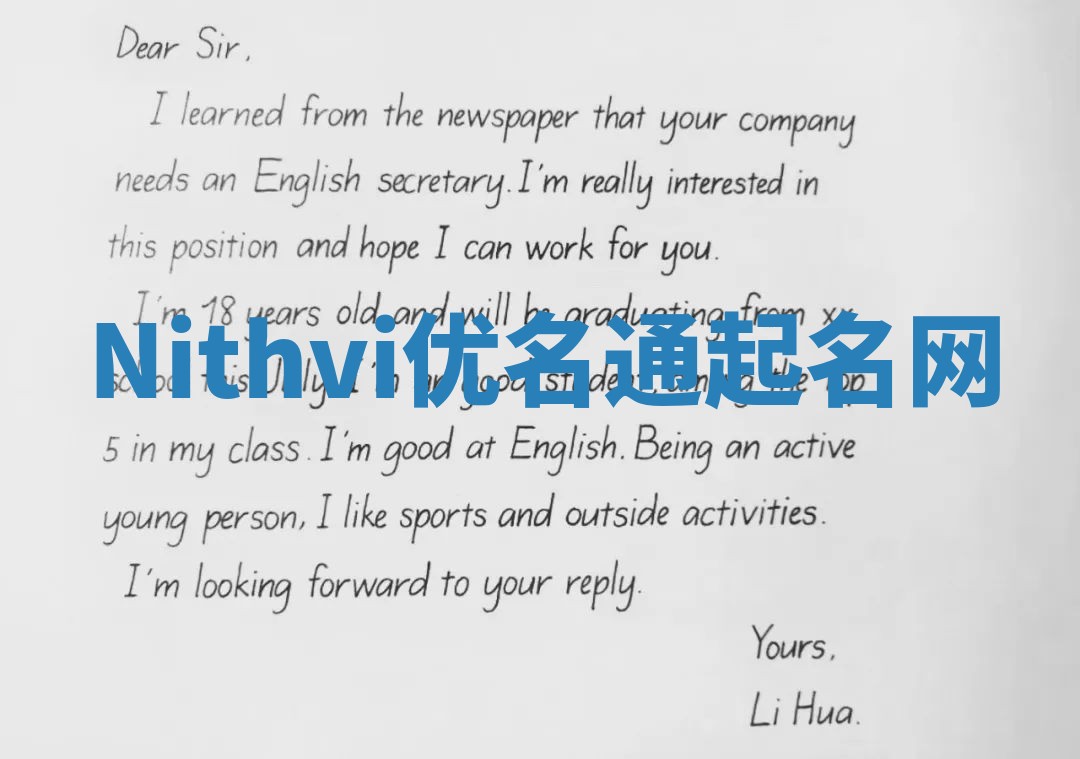 Dear Sir,
I learned from the newspaper that your company
needs an English secretary. I'm really interested in
this position and hope I can work for you.
I'm 18 years old and will be graduating from xx
Nithvi优名通起名网
school this July. I'm a good student, among the top
5 in my class. I'm good at English. Being an active
young person, I like sports and outside activities.
I'm looking forward to your reply.
Yours,
Li Hua.